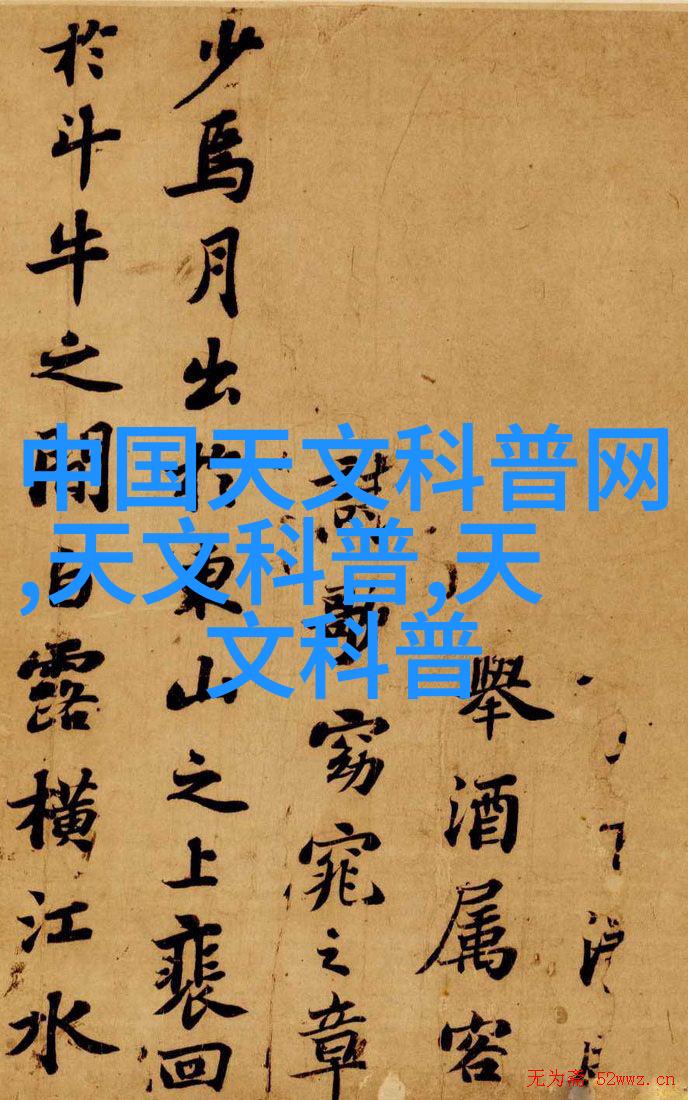 舉酒属客
窈窕之章
少焉月出於東山之上裴回
於斗牛之間白露橫江水
中国天文科普网
,天文科普,天
文科普
无为斋 52wwz.cn